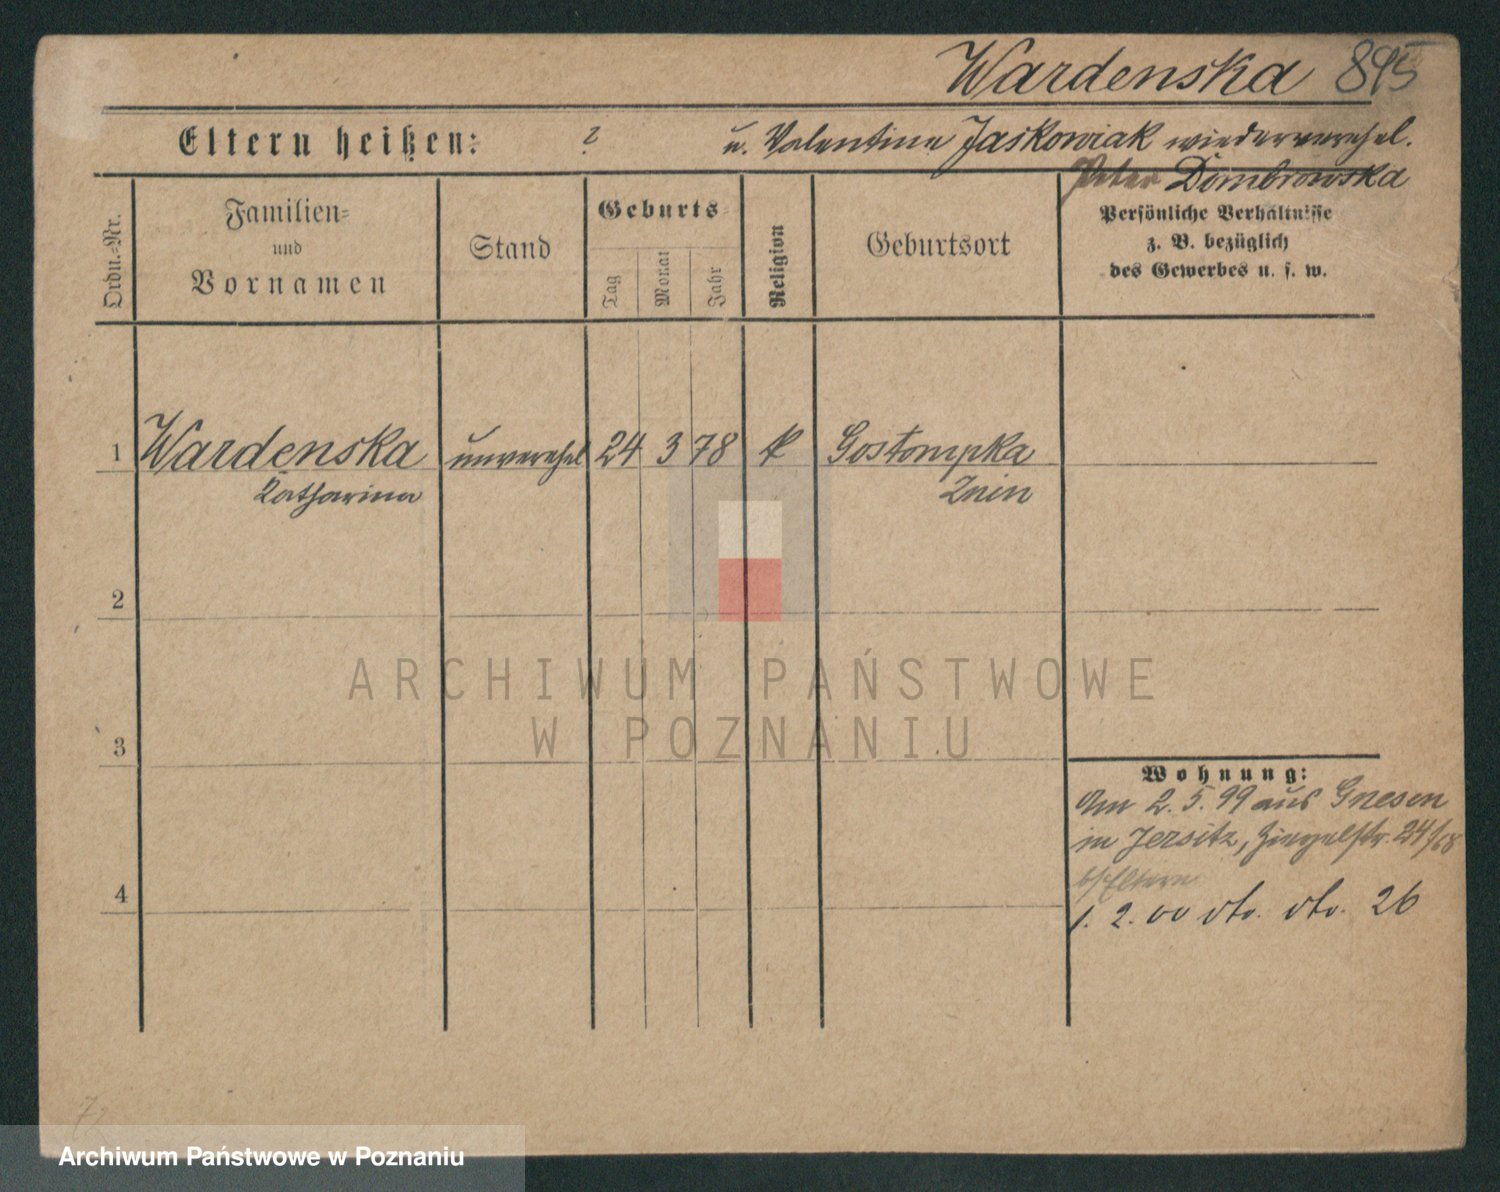 Wardenska 895
Eltern heißen: ? u. Valentine Jaskowiak wiederverehel.
Peter Dombrowska
Ordn.-Nr.
Familien-
und
Vornamen
Stand
Geburts-
Tag
Monat
Jahr
Religion
Geburtsort
Persönliche Verhältnisse
z. B. bezüglich
des Gewerbes u. s. w.
1 Wardenska unverehel 24 3 78 k Gostompka
Katharina Znin
2
ARCHIWUM PAŃSTWOWE
W POZNANIU
3
Wohnung:
Am 2. 5. 99 aus Gnesen
in Jersitz, Ziegelstr. 24/68
b/Eltern
4
1. 2. 00 dto. dto. 26
Archiwum Państwowe w Poznaniu